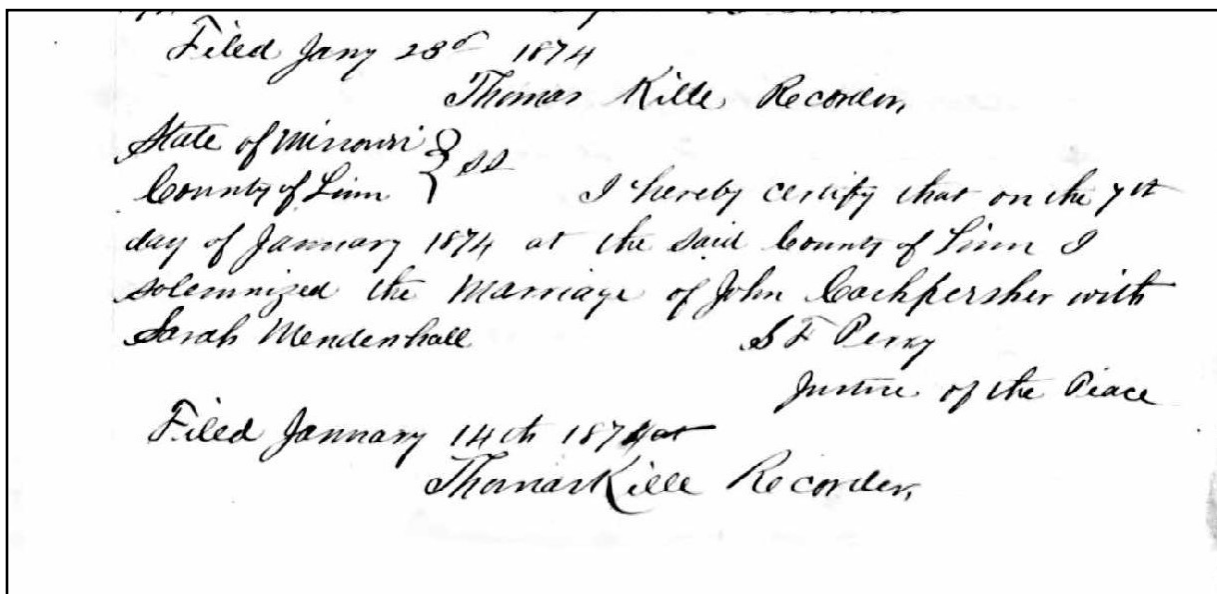 Filed Jany 23d 1874
Thomas Kille Recorder,
State of Missouri } SS
County of Linn
I hereby certify that on the 7th
day of January 1874 at the said County of Linn I
solemnized the Marriage of John Cochpersher with
Sarah Mendenhall
S F Perry
Justice of the Peace
Filed January 14th 1874
Thomas Kille Recorder,